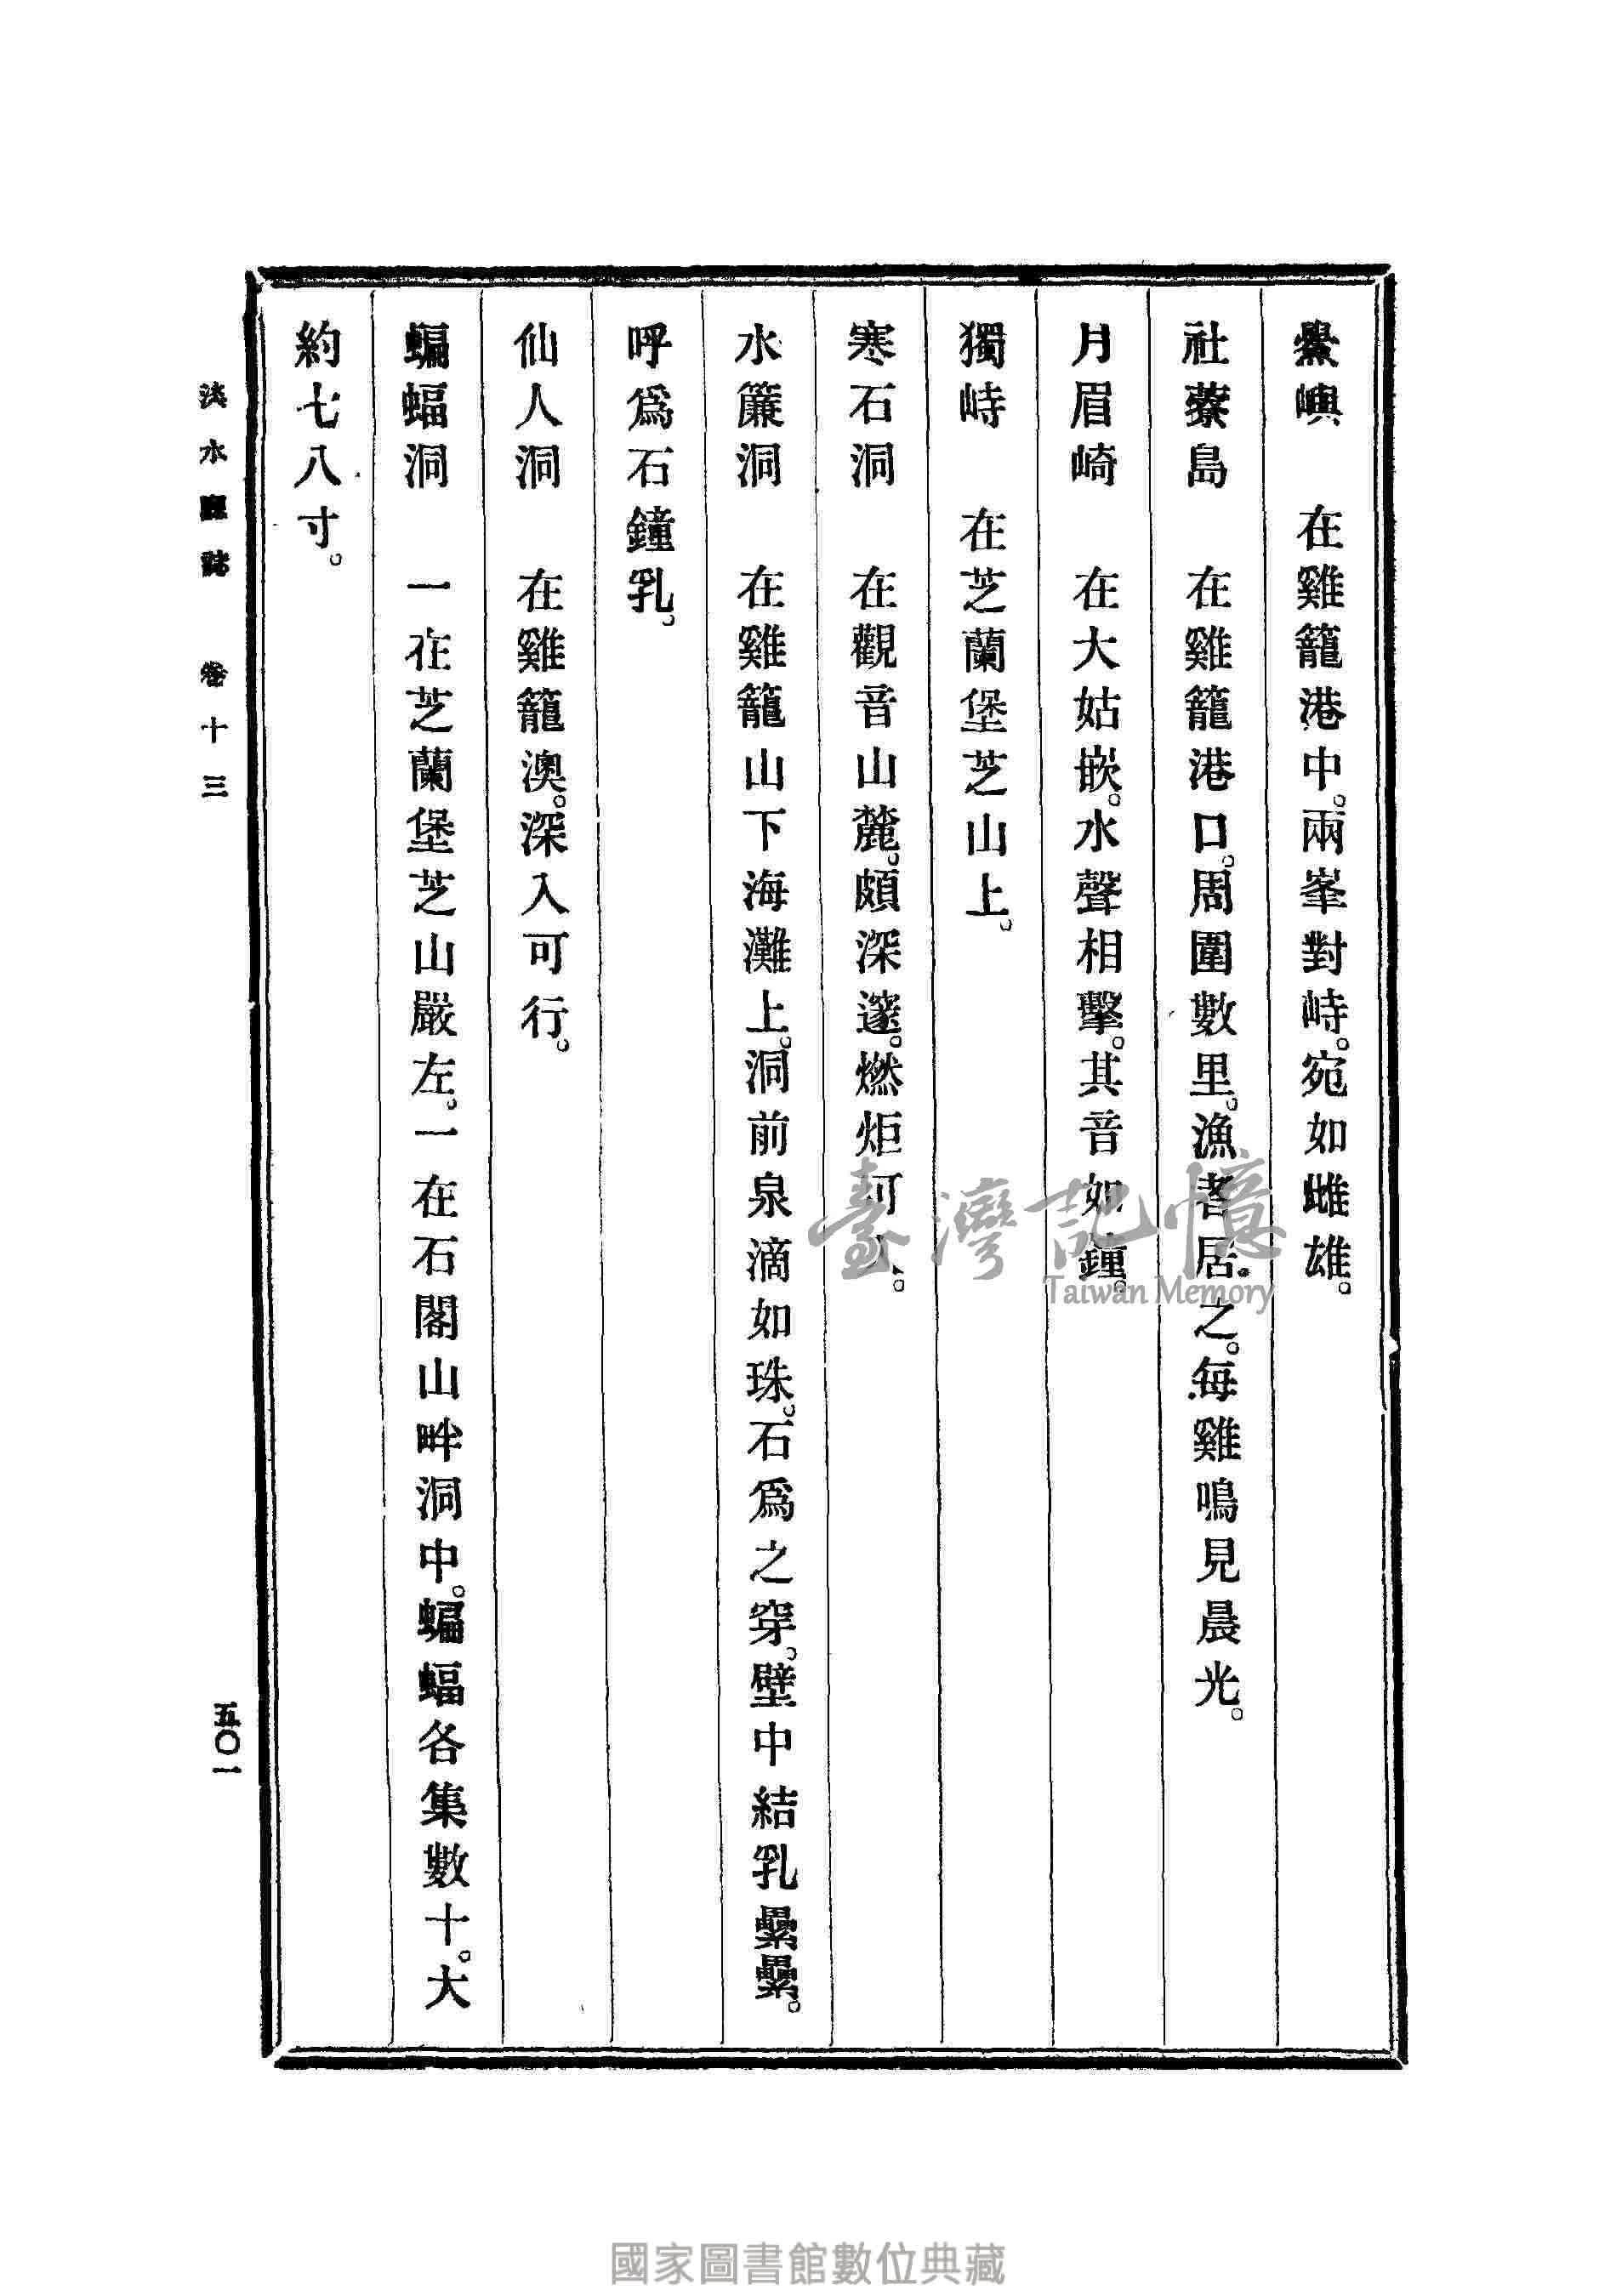 鱟嶼　在雞籠港中。兩峯對峙。宛如雌雄。
社藔島　在雞籠港口。周圍數里。漁者居之。每雞鳴見晨光。
月眉崎　在大姑嵌。水聲相擊。其音如鐘。
獨峙　在芝蘭堡芝山上。
寒石洞　在觀音山麓。頗深邃。燃炬可入。
水簾洞　在雞籠山下海灘上。洞前泉滴如珠。石爲之穿。壁中結乳纍纍。
呼爲石鐘乳。
仙人洞　在雞籠澳。深入可行。
蝙蝠洞　一在芝蘭堡芝山嚴左。一在石閣山畔洞中。蝙蝠各集數十。大
約七八寸。
淡水廳誌　卷十三
五〇一
臺灣記憶
Taiwan Memory
國家圖書館數位典藏